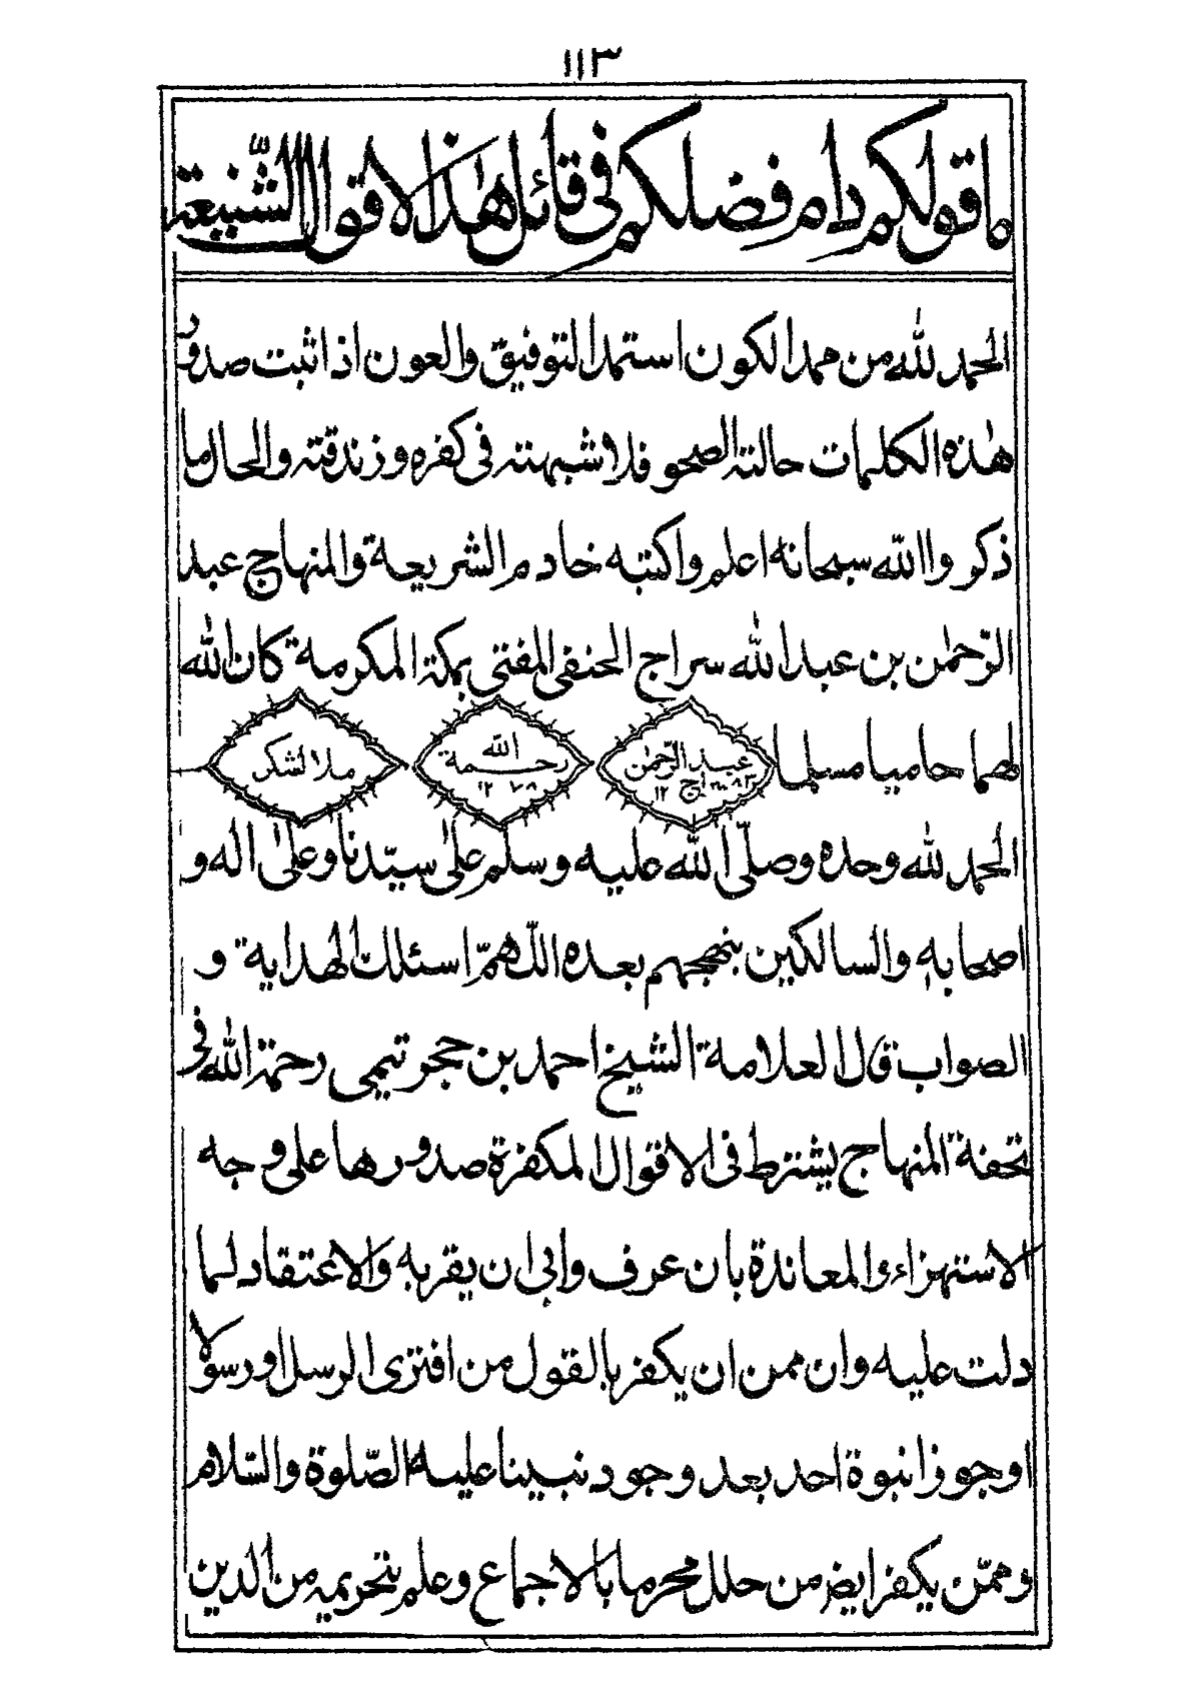 ١١٣
ما قولكم دام فضلكم فى قائل هذا الاقوال الشنيعة
الحمد لله من ممد الكون استمد التوفيق والعون اذا ثبت صدور
هٰذه الكلمات حالتہ الصحو فلا شبهتہ فى كفره وزندقتہ والحال ما
ذكروا الله سبحانه اعلم واكتبه خادم الشريعة والمنهاج عبد
الرّحمٰن بن عبد الله سراج الحنفى المفتى بمكة المكرمة كان الله
لهما حاميا مسلما
عبد الرّحمٰن سراج ١٢
الله رحمة ١٢٧٨
الحمد لله وحده وصلّى الله عليه وسلم علىٰ سيّدنا وعلىٰ اله و
اصحابه والسالكين بنهجهم بعده اللّٰهمّ اسئلك الهداية و
الصواب قال العلامة الشيخ احمد بن حجر تيمى رحمة الله فى
تحفة المنهاج يشترط فى الاقوال المكفرة صدورها على وجه
الاستهزاء والمعاندة بان عرف وابى ان يقربه والاعتقاد لما
دلت عليه وان ممن ان يكفر بالقول من افترى الرسل او رسولا
اوجوز انبوة احد بعد وجود نبينا عليه الصّلوة والسّلام
وممّن يكفر ايض من حلل محرما بالاجماع وعلم بتحريمہ من الدين